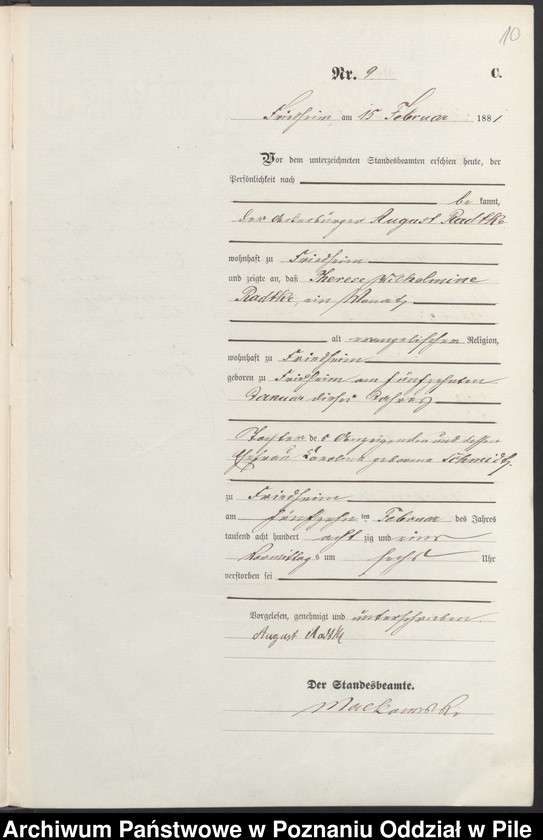 10
Nr. 9 C.
Friedheim, am 15 Februar 1881
Vor dem unterzeichneten Standesbeamten erschien heute, der
Persönlichkeit nach
be kannt,
der Ackerbürger August Radtke
wohnhaft zu Friedheim
und zeigte an, daß Therese Wilhelmine
Radtke, ein Monat
alt evangelischer Religion,
wohnhaft zu Friedheim
geboren zu Friedheim am fünfzehnten
Januar dieses Jahres
Tochter des Anzeigenden und dessen
Ehefrau Karoline geborene Schmidt,
zu Friedheim
am fünfzehn ten Februar des Jahres
tausend acht hundert acht zig und eins
Vormittag s um sechs Uhr
verstorben sei
Vorgelesen, genehmigt und unterschrieben.
August Radtke
Der Standesbeamte.
Archiwum Państwowe w Poznaniu Oddział w Pile